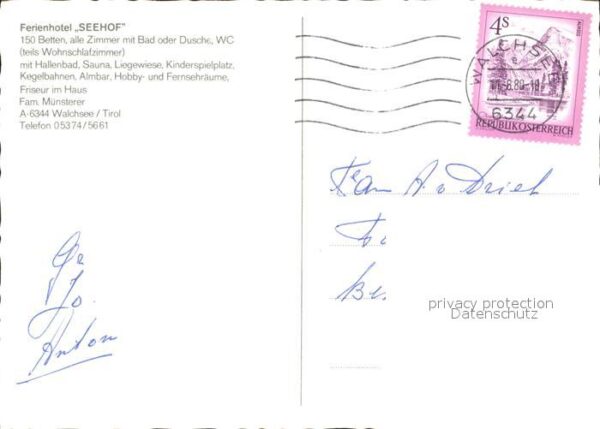 Ferienhotel „SEEHOF"
150 Betten, alle Zimmer mit Bad oder Dusche, WC
(teils Wohnschlafzimmer)
mit Hallenbad, Sauna, Liegewiese, Kinderspielplatz,
Kegelbahnen, Almbar, Hobby- und Fernsehräume,
Friseur im Haus
Fam. Münsterer
A-6344 Walchsee / Tirol
Telefon 05374/5661
4S
ALMSEE
WALCHSEE
6344
REPUBLIK ÖSTERREICH
privacy protection
Datenschutz
Ge
Jo.
Anton